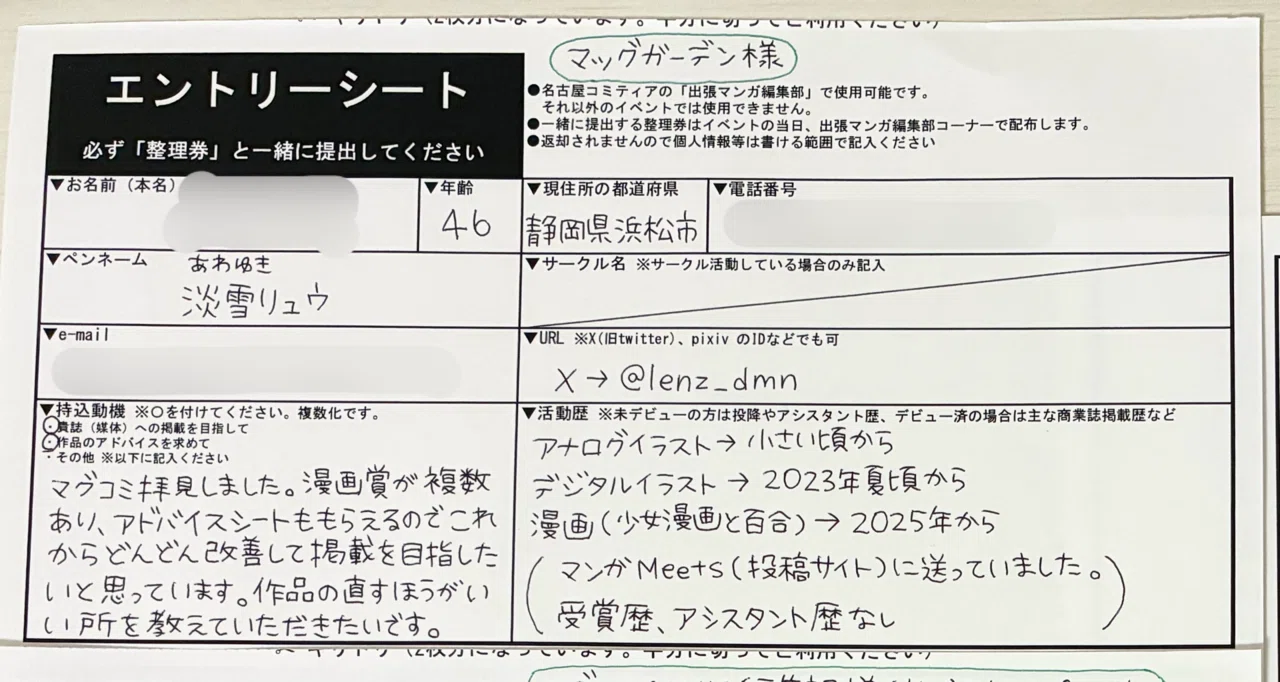 マッグガーデン様
エントリーシート
必ず「整理券」と一緒に提出してください
●名古屋コミティアの「出張マンガ編集部」で使用可能です。
それ以外のイベントでは使用できません。
●一緒に提出する整理券はイベントの当日、出張マンガ編集部コーナーで配布します。
●返却されませんので個人情報等は書ける範囲で記入ください
▼お名前（本名）
▼年齢
46
▼現住所の都道府県
静岡県浜松市
▼電話番号
▼ペンネーム
あわゆき
淡雪リュウ
▼サークル名 ※サークル活動している場合のみ記入
▼e-mail
▼URL ※X(旧twitter)、pixiv のIDなどでも可
X→@lenz_dmn
▼持込動機 ※○を付けてください。複数化です。
・貴誌（媒体）への掲載を目指して
・作品のアドバイスを求めて
・その他 ※以下に記入ください
マグコミ拝見しました。漫画賞が複数
あり、アドバイスシートももらえるのでこれ
からどんどん改善して掲載を目指した
いと思っています。作品の直すほうがい
い所を教えていただきたいです。
▼活動歴 ※未デビューの方は投降やアシスタント歴、デビュー済の場合は主な商業誌掲載歴など
アナログイラスト→小さい頃から
デジタルイラスト→2023年夏頃から
漫画（少女漫画と百合）→2025年から
（マンガMeets（投稿サイト）に送っていました。
受賞歴、アシスタント歴なし）